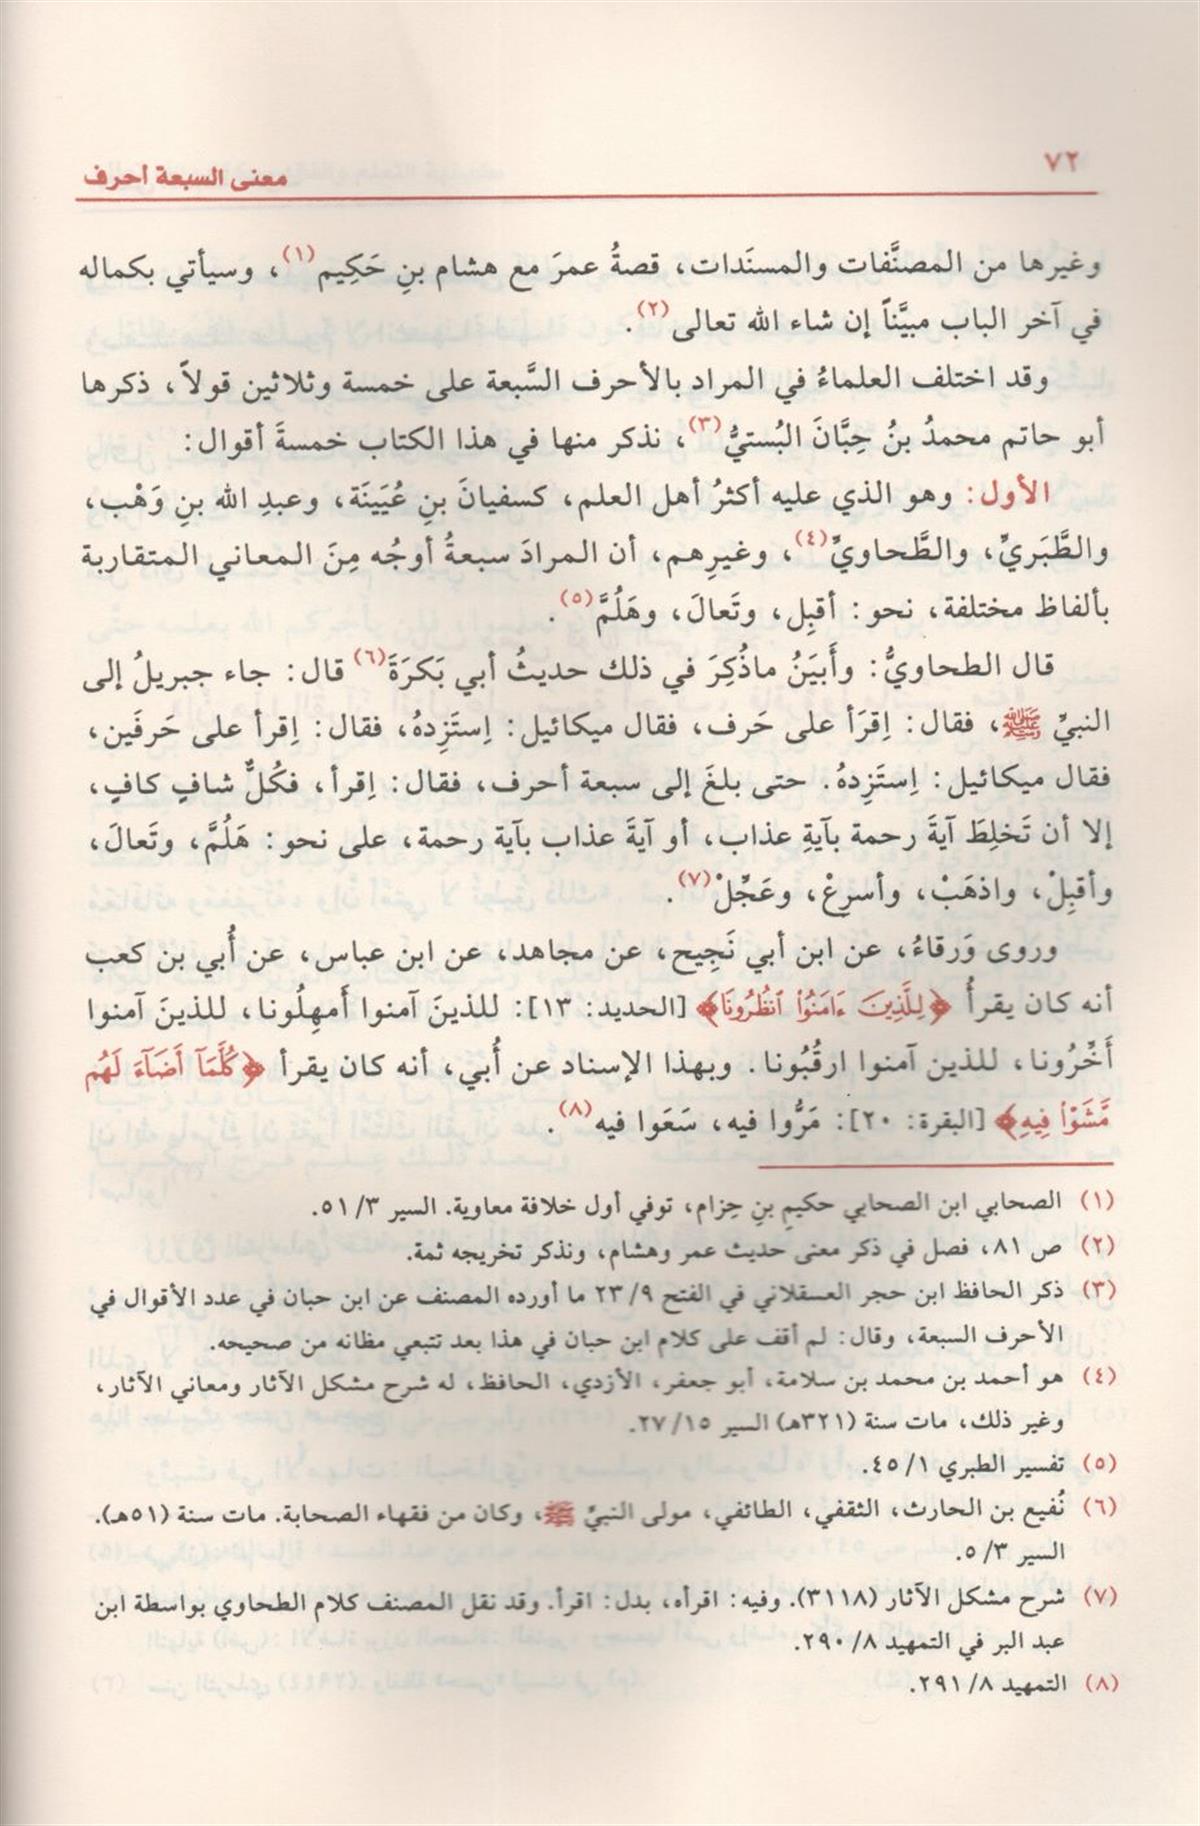 ٧٢
معنى السبعة أحرف
وغيرها من المصنَّفات والمسنَدات، قصةُ عمرَ مع هشام بنِ حَكِيم(١)، وسيأتي بكماله
في آخر الباب مبيَّناً إن شاء الله تعالى(٢).
وقد اختلف العلماءُ في المراد بالأحرف السَّبعة على خمسة وثلاثين قولاً، ذكرها
أبو حاتم محمدُ بنُ حِبَّانَ البُستيُّ(٣)، نذكر منها في هذا الكتاب خمسةَ أقوال:
الأول: وهو الذي عليه أكثرُ أهل العلم، كسفيانَ بنِ عُيَينَة، وعبدِ الله بنِ وَهْب،
والطَّبَريِّ، والطَّحاويِّ(٤)، وغيرِهم، أن المرادَ سبعةُ أوجُه مِنَ المعاني المتقاربة
بألفاظ مختلفة، نحو: أقبِل، وتَعالَ، وهَلُمَّ(٥).
قال الطحاويُّ: وأَبيَنُ ماذُكِرَ في ذلك حديثُ أبي بَكرَةَ(٦) قال: جاء جبريلُ إلى
النبيِّ ﷺ، فقال: اِقرَأ على حَرف، فقال ميكائيل: اِستَزِدهُ، فقال: اِقرأ على حَرفَين،
فقال ميكائيل: اِستَزِدهُ. حتى بلغَ إلى سبعة أحرف، فقال: اِقرأ، فكُلٌّ شافٍ كافٍ،
إلا أن تَخلِطَ آيةَ رحمة بآيةِ عذاب، أو آيةَ عذاب بآية رحمة، على نحو: هَلُمَّ، وتَعالَ،
وأقبِلْ، واذهَبْ، وأسرِعْ، وعَجِّلْ(٧).
وروى وَرقاءُ، عن ابن أبي نَجِيح، عن مجاهد، عن ابن عباس، عن أُبي بن كعب
أنه كان يقرأُ ﴿لِلَّذِينَ ءَامَنُوا۟ ٱنظُرُونَا﴾ [الحديد: ١٣]: للذينَ آمنوا أَمهِلُونا، للذينَ آمنوا
أَخِّرُونا، للذين آمنوا ارقُبُونا. وبهذا الإسناد عن أُبي، أنه كان يقرأ ﴿كُلَّمَآ أَضَآءَ لَهُم
مَّشَوْا۟ فِيهِ﴾ [البقرة: ٢٠]: مَرُّوا فيه، سَعَوا فيه(٨).
(١) الصحابي ابن الصحابي حكيمِ بنِ حِزام، توفي أول خلافة معاوية. السير ٣/ ٥١.
(٢) ص ٨١، فصل في ذكر معنى حديث عمر وهشام، ونذكر تخريجه ثمة.
(٣) ذكر الحافظ ابن حجر العسقلاني في الفتح ٩/ ٢٣ ما أورده المصنف عن ابن حبان في عدد الأقوال في
الأحرف السبعة، وقال: لم أقف على كلام ابن حبان في هذا بعد تتبعي مظانه من صحيحه.
(٤) هو أحمد بن محمد بن سلامة، أبو جعفر، الأزدي، الحافظ، له شرح مشكل الآثار ومعاني الآثار،
وغير ذلك، مات سنة (٣٢١هـ) السير ١٥/ ٢٧.
(٥) تفسير الطبري ١/ ٤٥.
(٦) نُفيع بن الحارث، الثقفي، الطائفي، مولى النبيِّ ﷺ، وكان من فقهاء الصحابة. مات سنة (٥١هـ).
السير ٣/ ٥.
(٧) شرح مشكل الآثار (٣١١٨). وفيه: اقرأه، بدل: اقرأ. وقد نقل المصنف كلام الطحاوي بواسطة ابن
عبد البر في التمهيد ٨/ ٢٩٠.
(٨) التمهيد ٨/ ٢٩١.